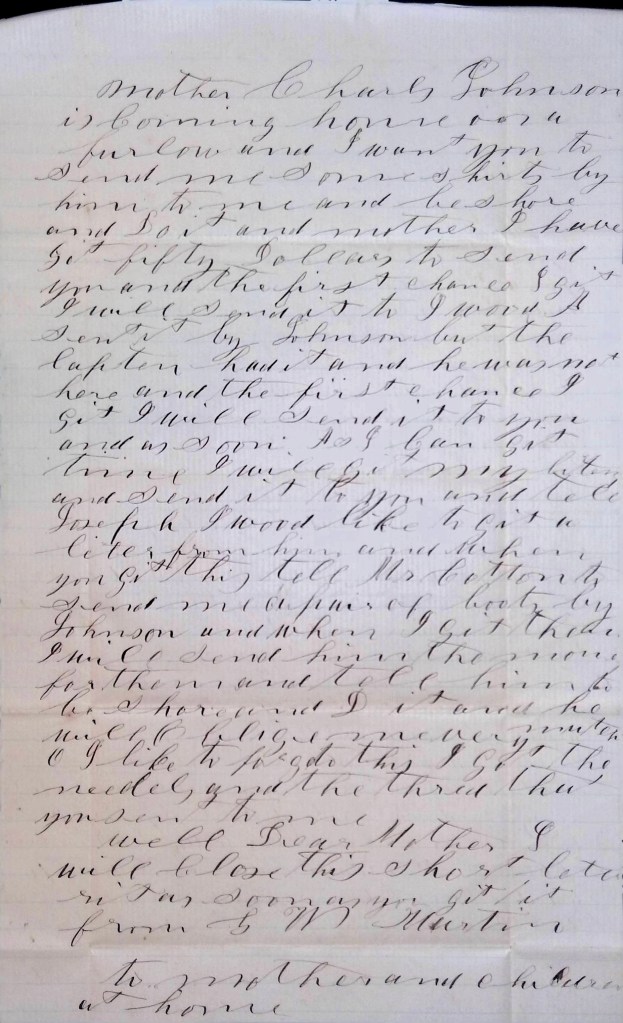 Mother Charls Johnson
is Coming home on a
furlow and I want you to
send me some shirts by
him to me and be shore
and Do it and mother I have
git fifty Dollars to send
you and the first chance I git
I will send it to I wood A
sent it by Johnson but the
Capten had it and he was not
here and the first chance I
git I will send it to you
and as soon As I Can git
time I will git my
and send it to you and tell
Joseph I wood like to git a
leter from him and when
you git this tell Mr Cotton to
send me a pair of boots by
Johnson and when I git them
I will send him the mony
for them and tell him to
be shore and D it and he
will Oblige me very mutch
O I like to forgot this I got the
needels and the thred that
you sent to me
well Dear Mother I
will Close this short leter
rit as soon as you git it
from G W Martin
to mother and children
at home